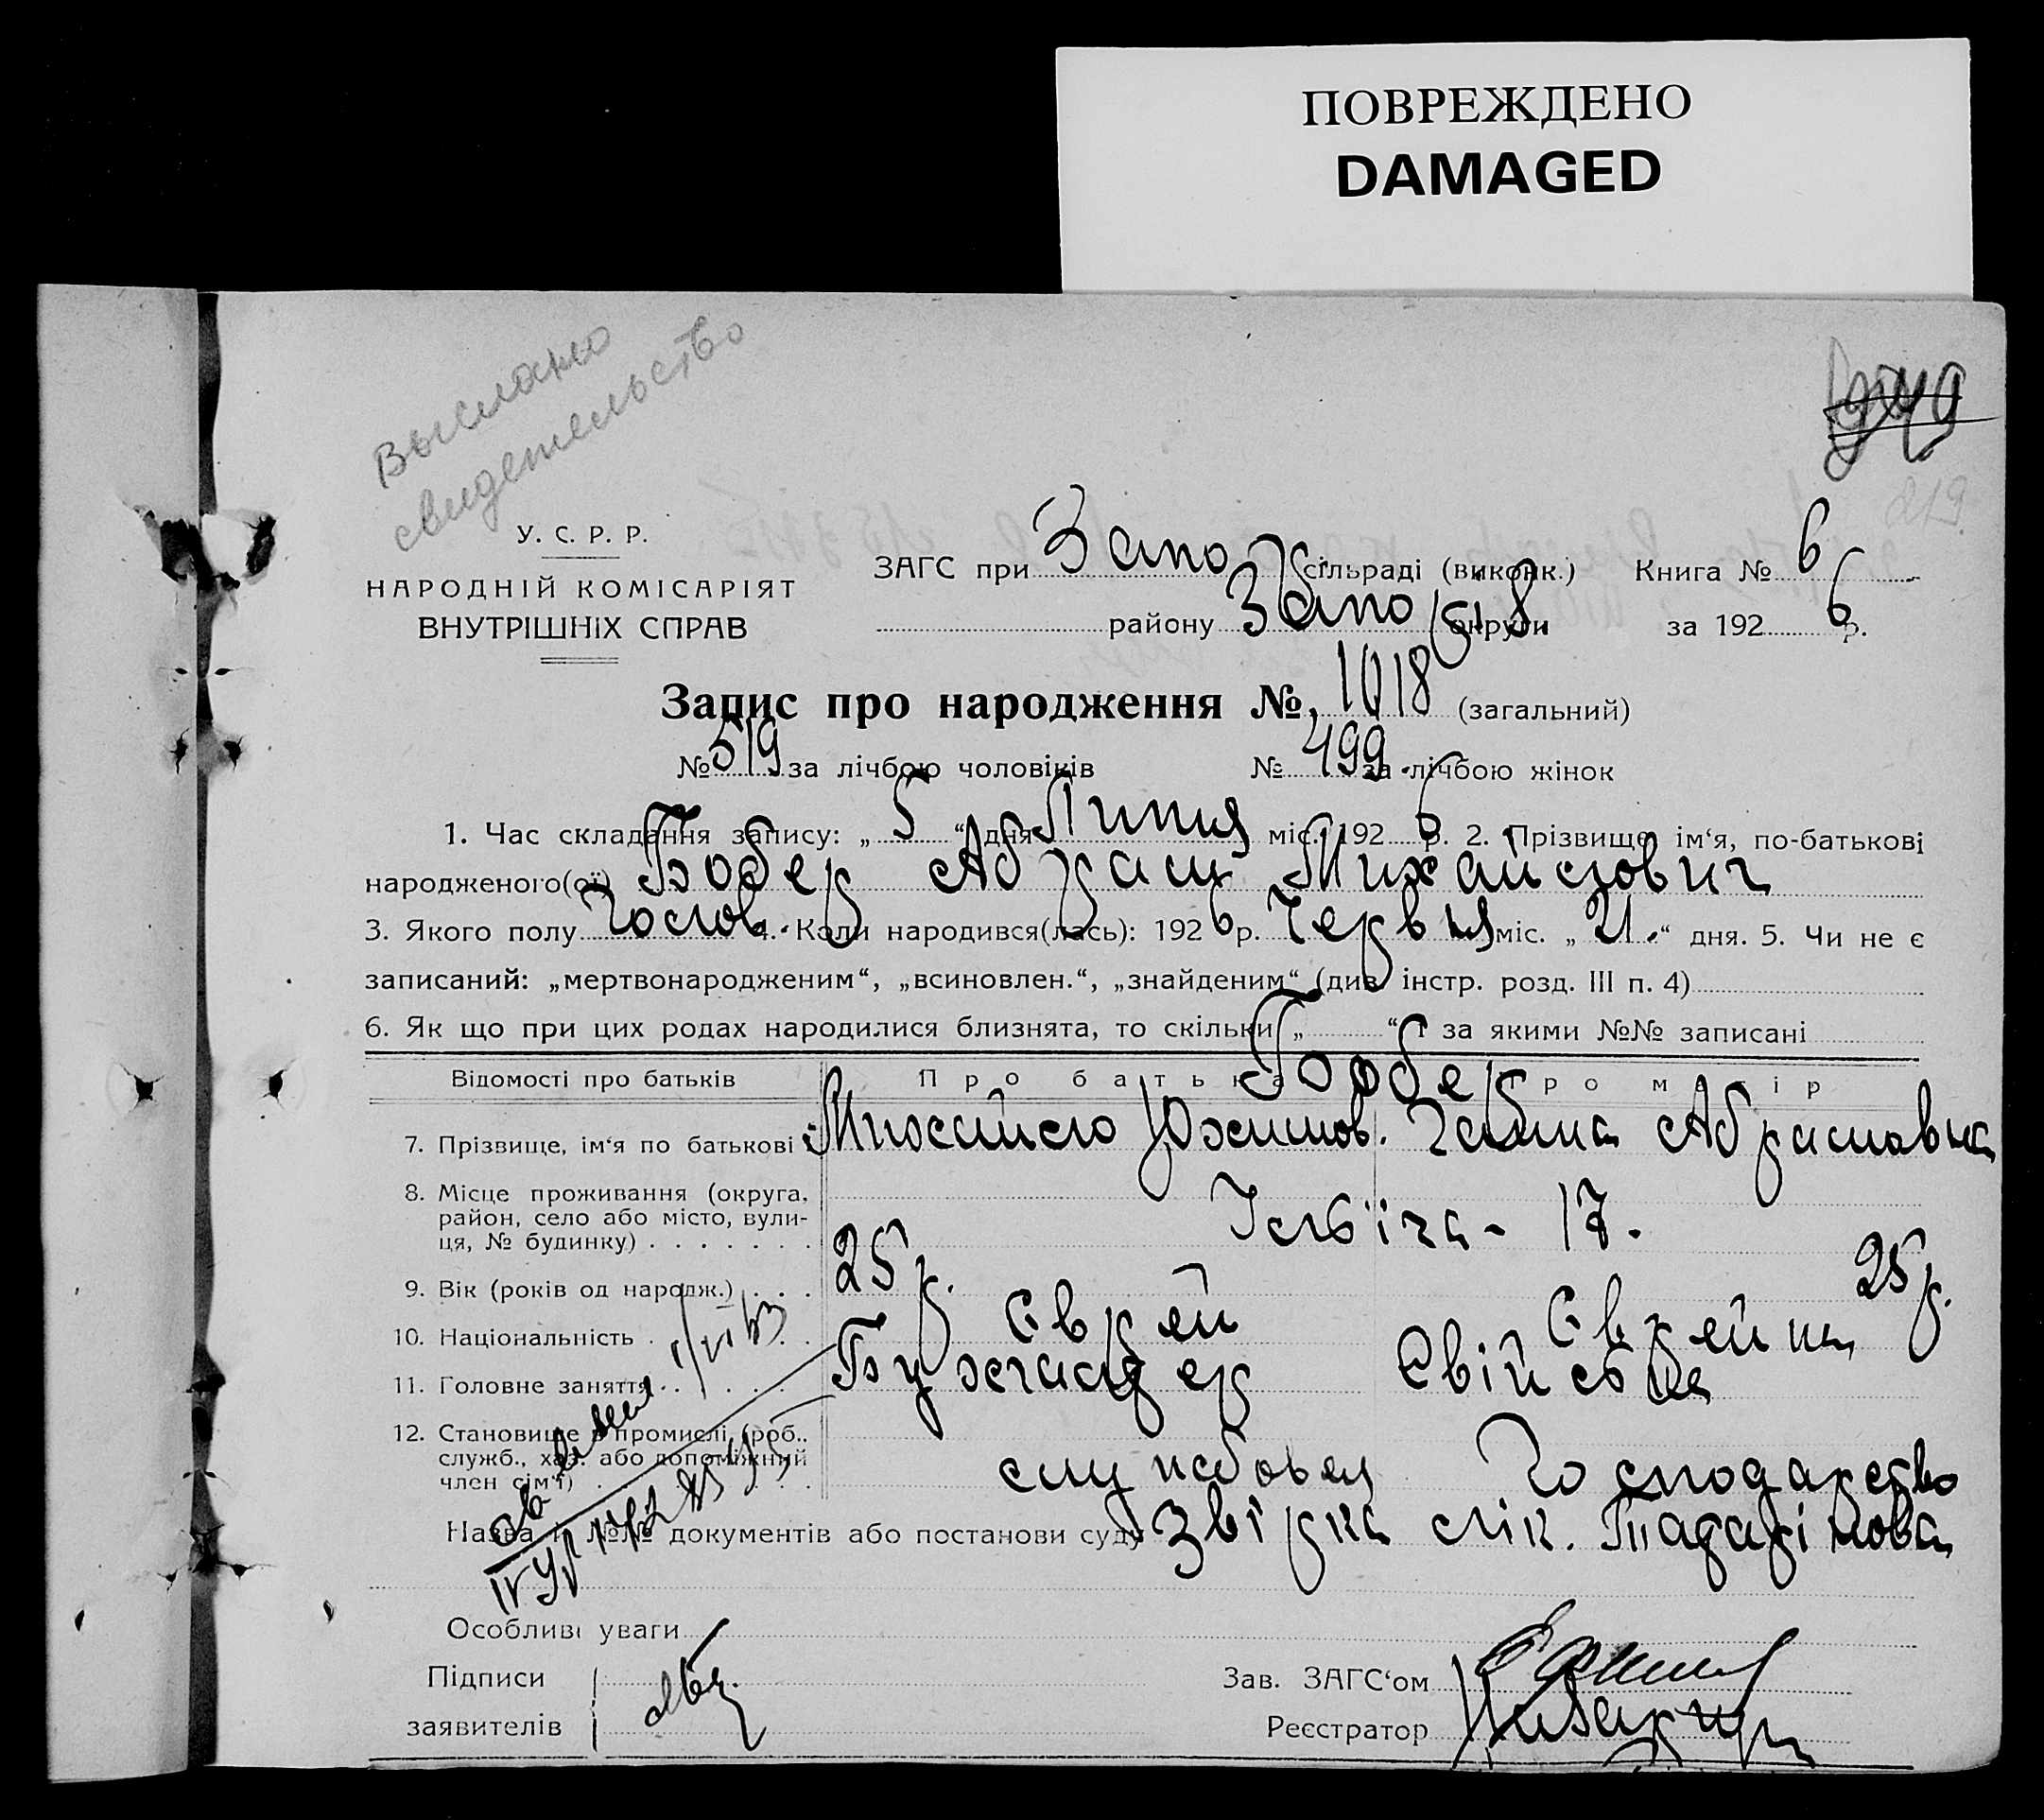 ПОВРЕЖДЕНО
DAMAGED
Выслано
свидетельство
219
У. С. Р. Р.
НАРОДНІЙ КОМІСАРІЯТ
ВНУТРІШНІХ СПРАВ
ЗАГС при Запо сільраді (виконк.) Книга № 6
району Запо округи за 192 6 р.
Запис про народження № 1018 (загальний)
№ 519 за лічбою чоловіків № 499 за лічбою жінок
1. Час складання запису: „ 5 “ дня Липця міс. 192 6 р. 2. Прізвище, ім‘я, по-батькові
народженого(ої) Бобер Абрам Михайлович
3. Якого полу Чолов. 4. Коли народився(лась): 192 6 р. Червня міс. „ 21. “ дня. 5. Чи не є
записаний: „мертвонародженим“, „всиновлен.“, „знайденим“ (див. інстр. розд. III п. 4)
6. Як що при цих родах народилися близнята, то скільки „ “ і за якими №№ записані
Бобер
Відомості про батьків Про батька Про матір
7. Прізвище, ім‘я по батькові Михайло Юхимов. Галина Абрамовна
8. Місце проживання (округа, район, село або місто, вулиця, № будинку) Ілліча - 17.
9. Вік (років од народж.) 25 р. 25 р.
10. Національність Єврей Єврейка
11. Головне заняття Бухгалтер Свійське
12. Становище в промислі (роб., служб., хаз. або допоміжний член сім‘ї) службовая Господарство
Назва і №№ документів або постанови суду Звірка лік.
Особливі уваги
Підписи
заявителів
Зав. ЗАГС‘ом
Реєстратор